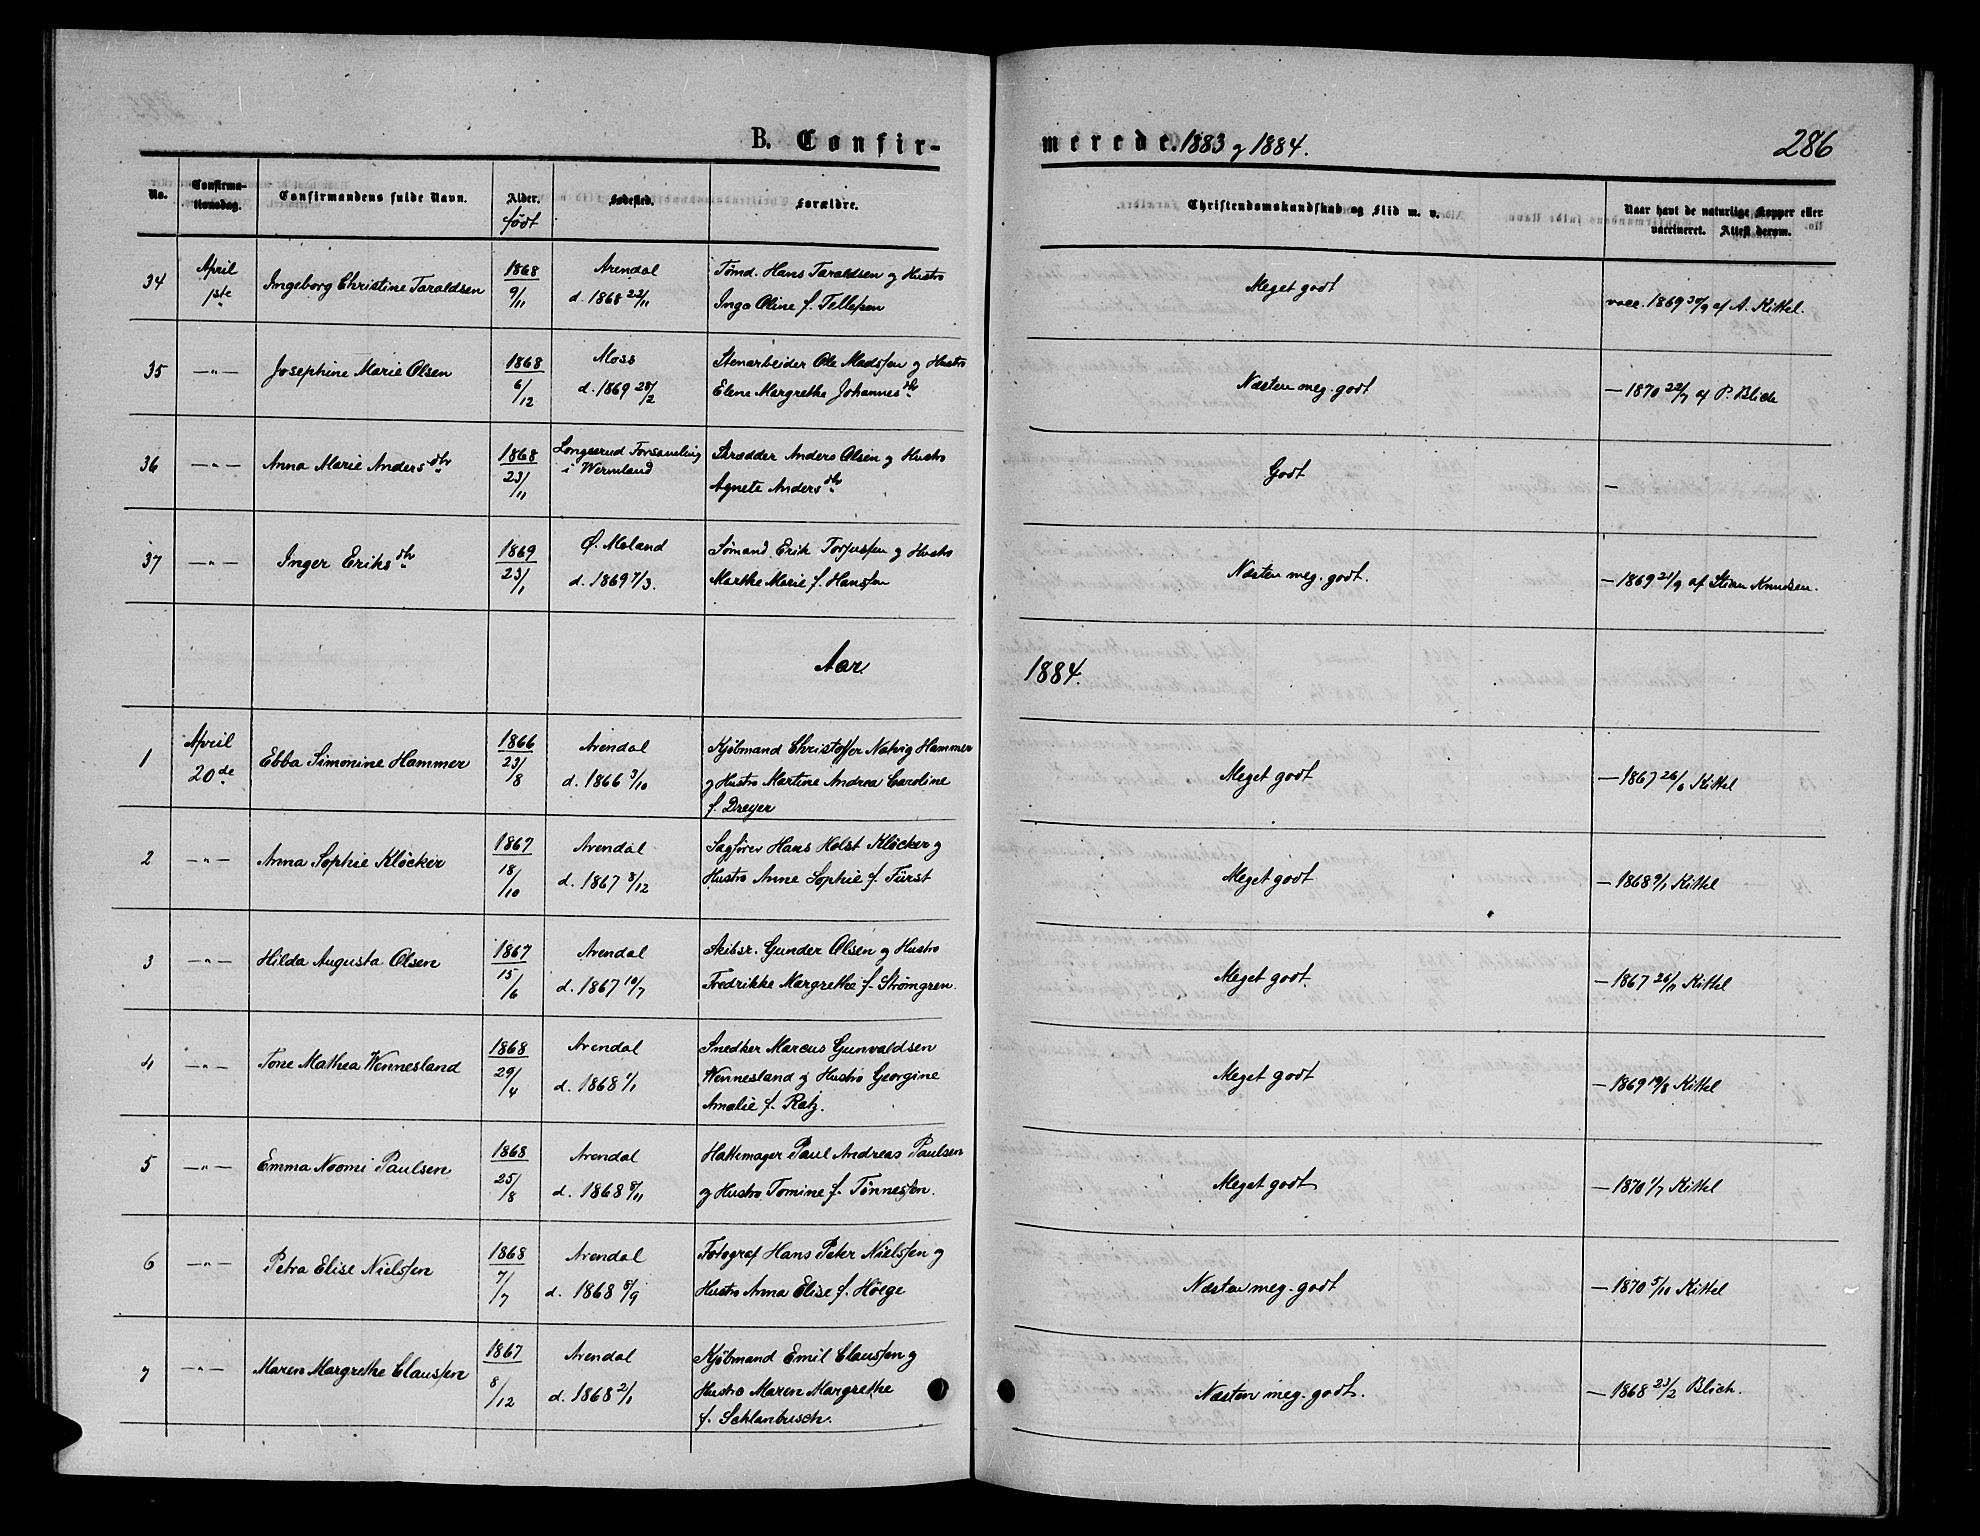 B. Confirmerede. 1883 og 1884.
286
No.
Confirmationsdag.
Confirmandens fulde Navn.
Alder.
født
Fødested.
Forældre.
Christendomskundskab og Flid m. v.
Naar havt de naturlige Kopper eller
vaccineret. Attest derom.
34 April 1ste Ingeborg Christine Taraldsen 1868 9/11 Arendal d. 1868 22/11
Tømd. Hans Taraldsen og Hustro
Inga Oline f. Tellefsen
Meget godt
vacc. 1869 30/9 af A. Kittel.
35 —"— Josephine Marie Olsen 1868 6/12 Moss d. 1869 28/2
Stenarbeider Ole Madssen og Hustro
Elene Margrethe Johannesdtr
Næsten meg. godt
— 1870 22/7 af P. Blich
36 —"— Anna Marie Andersdtr 1868 23/11 Longserud Forsamling
i Wermland
Skrædder Anders Olsen og Hustro
Agnete Andersdtr
Godt
—
37 —"— Inger Eriksdtr 1869 23/1 Ø. Moland d. 1869 7/3.
Sømand. Erik Torjussen og Hustro
Marthe Marie f. Hanssen
Næsten meg. godt.
— 1869 21/9 af Stian Knudsen.
Aar 1884.
1 April 20de Ebba Simonine Hammer 1866 23/8 Arendal d. 1866 3/10
Kjøbmand Christoffer Natvig Hammer
og Hustro Martine Andrea Caroline
f. Dreyer
Meget godt
— 1867 26/6 Kittel
2 —"— Anna Sophie Kløcker 1867 18/10 Arendal d. 1867 8/12
Sagfører Hans Holst Kløcker og
Hustro Anne Sophie f. Fürst
Meget godt
— 1868 9/1 Kittel
3 —"— Hilda Augusta Olsen 1867 15/6 Arendal d. 1867 10/7
Skibsr. Gunder Olsen og Hustro
Fredrikke Margrethe f. Strømgren.
Meget godt.
— 1867 26/11 Kittel
4 —"— Tone Mathea Wennesland 1868 29/4 Arendal d. 1868 1/1
Snedker Marcus Gunvaldsen
Wennesland og Hustro Georgine
Amalie f. Ratz.
Meget godt
— 1869 19/8 Kittel
5 —"— Emma Noomi Paulsen 1868 25/8 Arendal d. 1868 8/11
Hattemager Paul Andreas Paulsen
og Hustro Tomine f. Tønnessen.
Meget godt
— 1870 1/7 Kittel
6 —"— Petra Elise Nielssen 1868 7/7 Arendal d. 1868 8/9
Fotograf Hans Peter Nielssen og
Hustro Anna Elise f. Höege
Næsten meg. godt
— 1870 5/10 Kittel
7 —"— Maren Margrethe Claussen 1867 8/12 Arendal d. 1868 2/1
Kjøbmand Emil Claussen og
Hustro Maren Margrethe
f. Schlanbusch.
Næsten meg. godt.
— 1868 23/2 Blich.